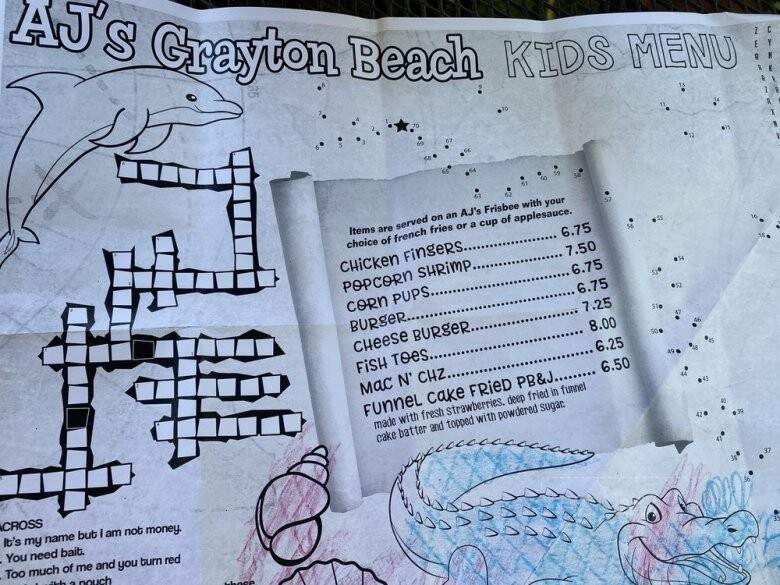 AJ's Grayton Beach KIDS MENU
Items are served on an AJ's Frisbee with your
choice of french fries or a cup of applesauce.
CHICKEN FINGERS........................ 6.75
POPCORN SHRIMP...................... 7.50
CORN PUPS................................ 6.75
BURGER...................................... 6.75
CHEESE BURGER......................... 7.25
FISH TOES................................... 8.00
MAC N' CHZ................................ 6.25
FUNNEL CAKE FRIED PB&J........ 6.50
made with fresh strawberries, deep fried in funnel
cake batter and topped with powdered sugar.
ACROSS
It's my name but I am not money.
You need bait.
Too much of me and you turn red
with a pouch